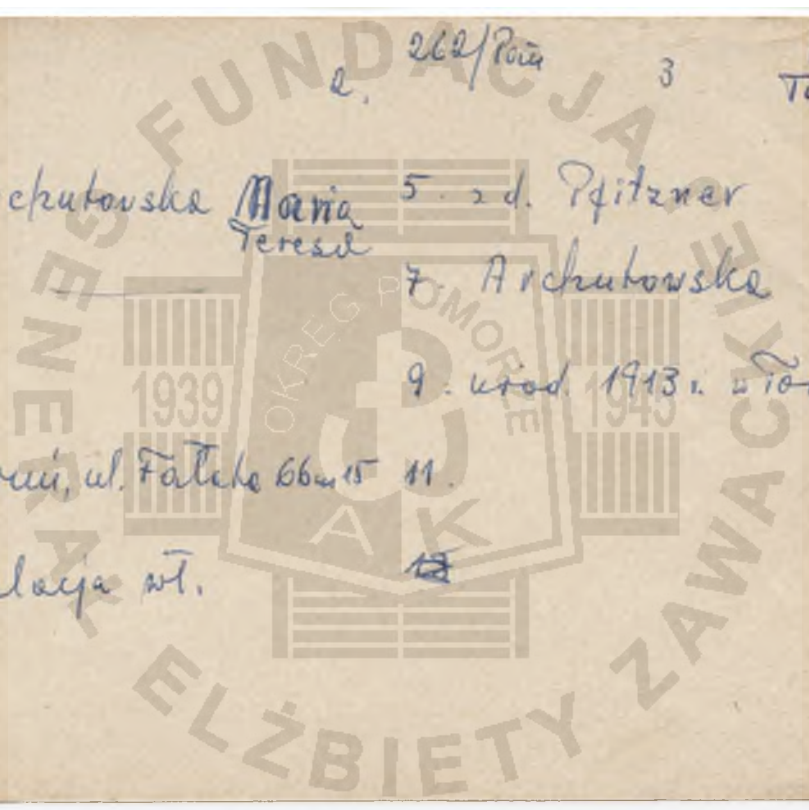 2. 262/Pom 3 To
chutowska Maria 5. z d. Pfitzner
Teresa
7. Archutowska
9. urod. 1913 r. w To
ruń, ul. Fałata 66 m 15 11.
lacja wł.
FUNDACJA GENERAŁ ELŻBIETY ZAWACKIEJ
OKRĘG POMORZE
1939 1945
AK